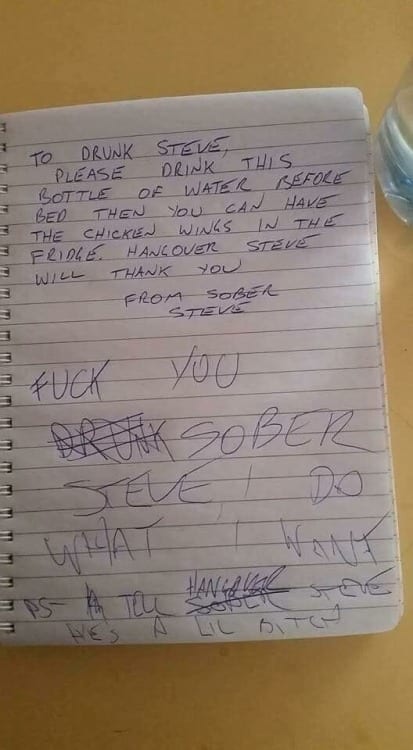 TO DRUNK STEVE,
PLEASE DRINK THIS
BOTTLE OF WATER BEFORE
BED THEN YOU CAN HAVE
THE CHICKEN WINGS IN THE
FRIDGE. HANGOVER STEVE
WILL THANK YOU
FROM SOBER
STEVE
FUCK YOU
DRUNK SOBER
STEVE, I DO
WHAT I WANT
PS- TELL HANGOVER SOBER STEVE
HE'S A LIL BITCH